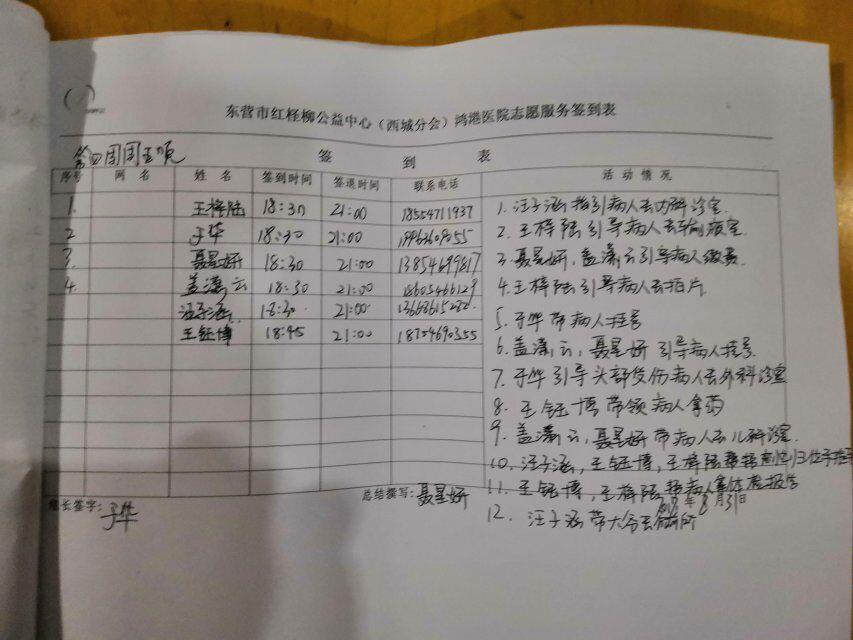 东营市红柽柳公益中心（西城分会）鸿港医院志愿服务签到表
第四周周五晚
签 到 表
序号 网名 姓名 签到时间 签退时间 联系电话 活动情况
1. 王梓陆 18:30 21:00 18554711937
2 于华 18:30 21:00
3. 聂星妍 18:30 21:00 13854699817
4. 盖潇云 18:30 21:00 18605466129
汪子涵 18:30 21:00
王钰博 18:45 21:00 18754690355
1. 汪子涵指引病人去内科诊室.
2. 王梓陆引导病人去输液室
3. 聂星妍,盖潇云引导病人缴费
4. 王梓陆引导病人去拍片
5. 于华带病人挂号
6. 盖潇云,聂星妍引导病人挂号.
7. 于华引导头部受伤病人去外科诊室
8. 王钰博带领病人拿药
9. 盖潇云,聂星妍带病人去儿科诊室.
10. 汪子涵,王钰博,王梓陆帮忙
11. 王钰博,王梓陆帮病人拿体检报告
12. 汪子涵带大爷去厕所
组长签字：于华
总结撰写：聂星妍
年8月31日